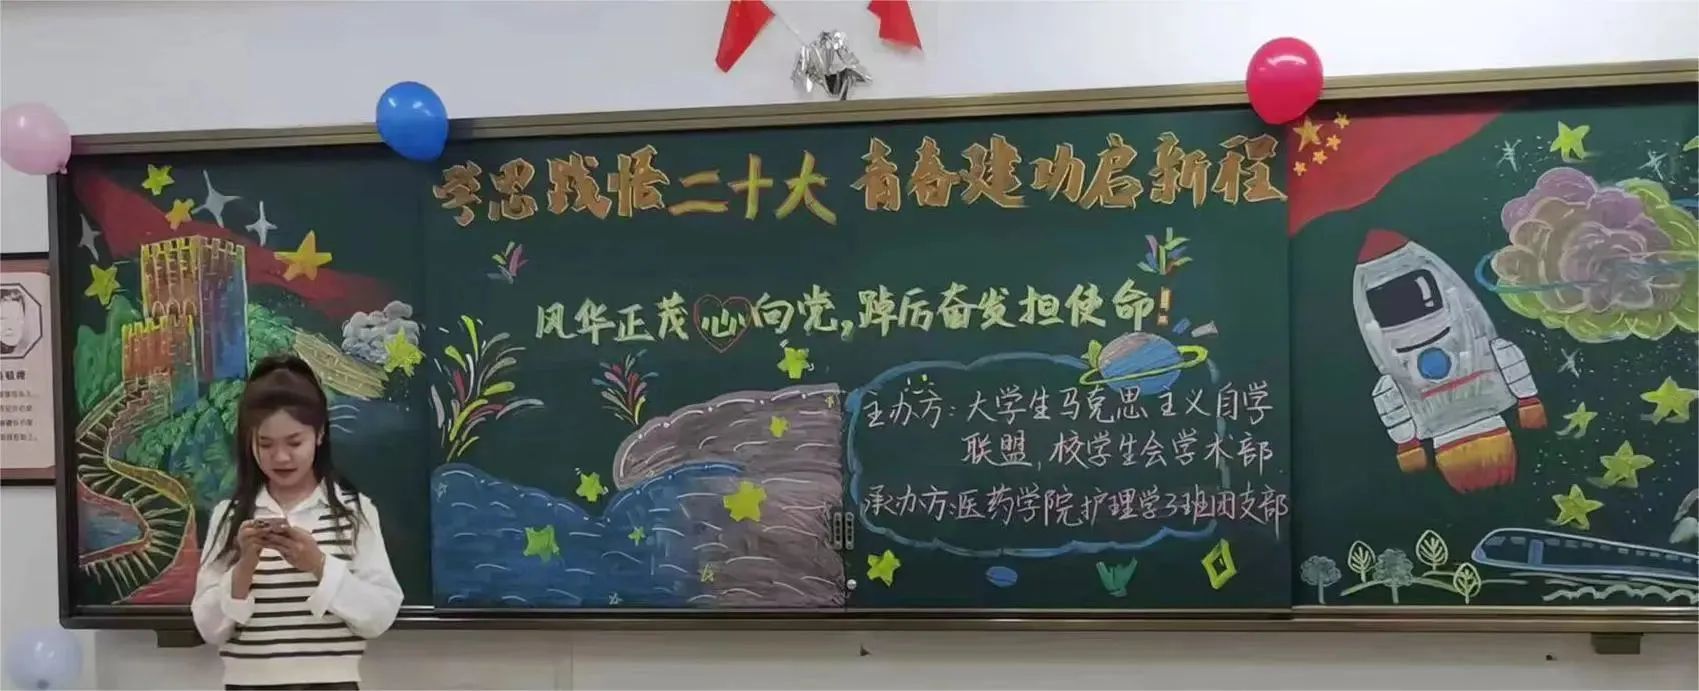 学思践悟二十大 青春建功启新程
风华正茂心向党,踔厉奋发担使命!
主办方:大学生马克思主义自学
联盟,校学生会学术部
承办方:医药学院护理学3班团支部